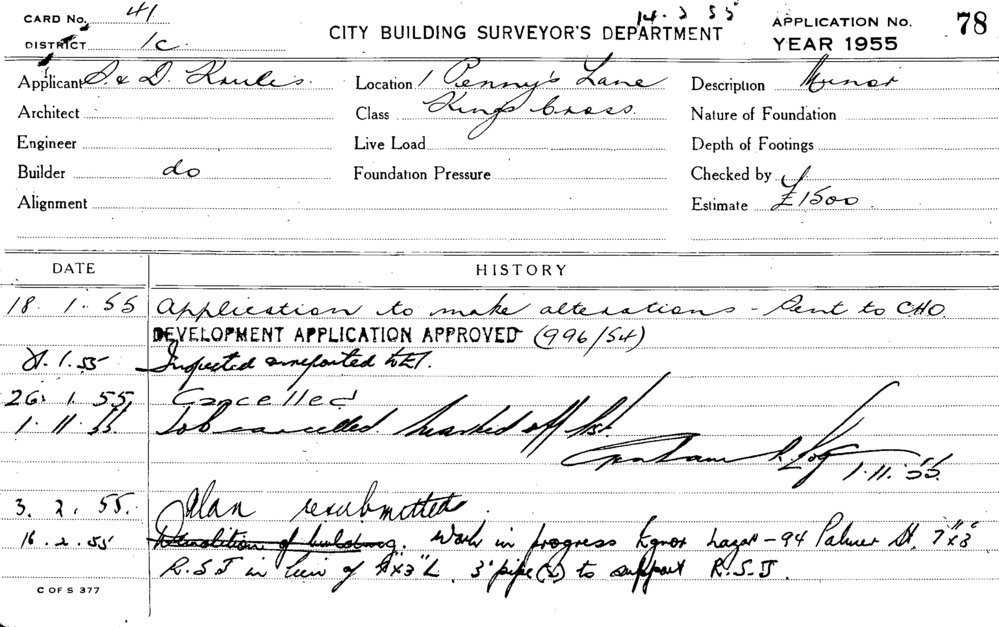 CARD No. 41
14. 2 55
DISTRICT 1c.
CITY BUILDING SURVEYOR'S DEPARTMENT
APPLICATION No. 78
YEAR 1955
Applicant S. & D.
Location 1 Penny's Lane
Description Minor
Architect
Class Kings Cross.
Nature of Foundation
Engineer
Live Load
Depth of Footings
Builder do
Foundation Pressure
Checked by
Alignment
Estimate £1500
DATE HISTORY
18. 1. 55 Application to make alterations - Sent to CHO.
DEVELOPMENT APPLICATION APPROVED (996/54)
.1.55 Inspected & reported
26. 1. 55 Cancelled
1. 11. 55. Job cancelled. Marked off list.
Graham R.
1. 11. 55.
3. 2. 55. Plan resubmitted.
16. 2. 55 Demolition of building. Work in progress - 94 Palmer St. 7"x3"
R.S.J in lieu of "x3"L. 3" pipe (2) to support R.S.J.
C OF S 377